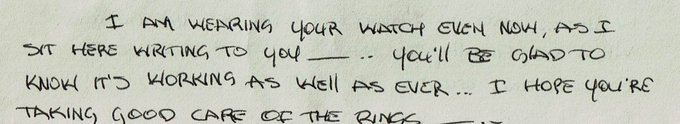 I AM WEARING YOUR WATCH EVEN NOW, AS I
SIT HERE WRITING TO YOU — .. YOU'LL BE GLAD TO
KNOW IT'S WORKING AS WELL AS EVER... I HOPE YOU'RE
TAKING GOOD CARE OF THE RINGS — ..